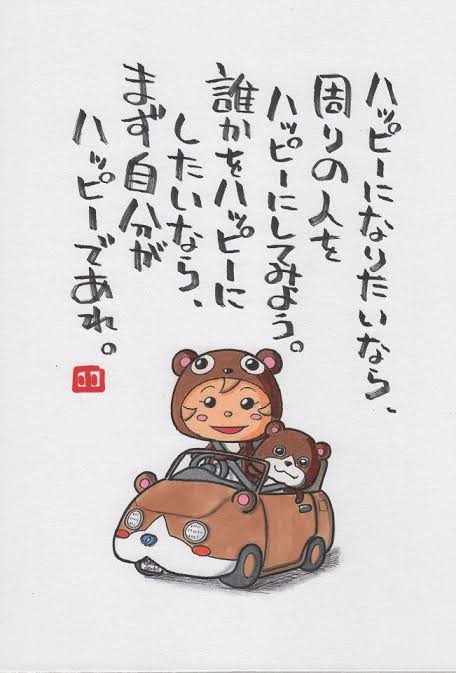 ハッピーになりたいなら、
周りの人を
ハッピーにしてみよう。
誰かをハッピーに
したいなら、
まず自分が
ハッピーであれ。